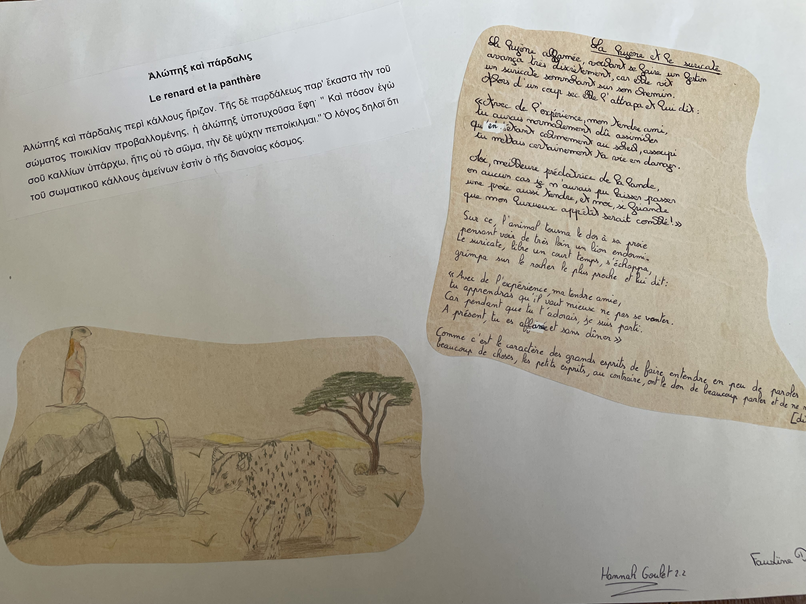 Ἀλώπηξ καὶ πάρδαλις
Le renard et la panthère
Ἀλώπηξ καὶ πάρδαλις περὶ κάλλους ἤριζον. Τῆς δὲ παρδάλεως παρ' ἕκαστα τὴν τοῦ
σώματος ποικιλίαν προβαλλομένης· ἡ ἀλώπηξ ὑποτυχοῦσα ἔφη· " Καὶ πόσον ἐγὼ
σοῦ καλλίων ὑπάρχω, ἥτις οὐ τὸ σῶμα, τὴν δὲ ψύχην πεποίκιλμαι." Ὁ λόγος δηλοῖ ὅτι
τοῦ σωματικοῦ κάλλους ἀμείνων ἐστὶν ὁ τῆς διανοίας κόσμος.
La hyène et le suricate
La hyène affamée, voulant se faire un festin
avança très discrètement, car elle vit
un suricate somnolant sur son chemin.
Alors d'un coup sec elle l'attrapa et lui dit:
« Avec de l'expérience, mon tendre ami,
tu aurais normalement dû assimiler
qu'en étant calmement au soleil, assoupi
tu mettais certainement ta vie en danger.
Moi, meilleure prédatrice de la lande,
en aucun cas je n'aurais pu laisser passer
une proie aussi tendre, et moi, si grande
que mon luxueux appétit serait comblé! »
Sur ce, l'animal tourna le dos à sa proie
pensant voir de très loin un lion endormi.
Le suricate, libre un court temps, s'échappa,
grimpa sur le rocher le plus proche et lui dit:
« Avec de l'expérience, ma tendre amie,
tu apprendras qu'il vaut mieux ne pas se vanter.
Car pendant que tu t'adorais, je suis parti.
A présent tu es affamée et sans dîner »
Comme c'est le caractère des grands esprits de faire entendre en peu de paroles
beaucoup de choses, les petits esprits, au contraire, ont le don de beaucoup parler et de ne
Hannah Goulet 2.2
Faustine